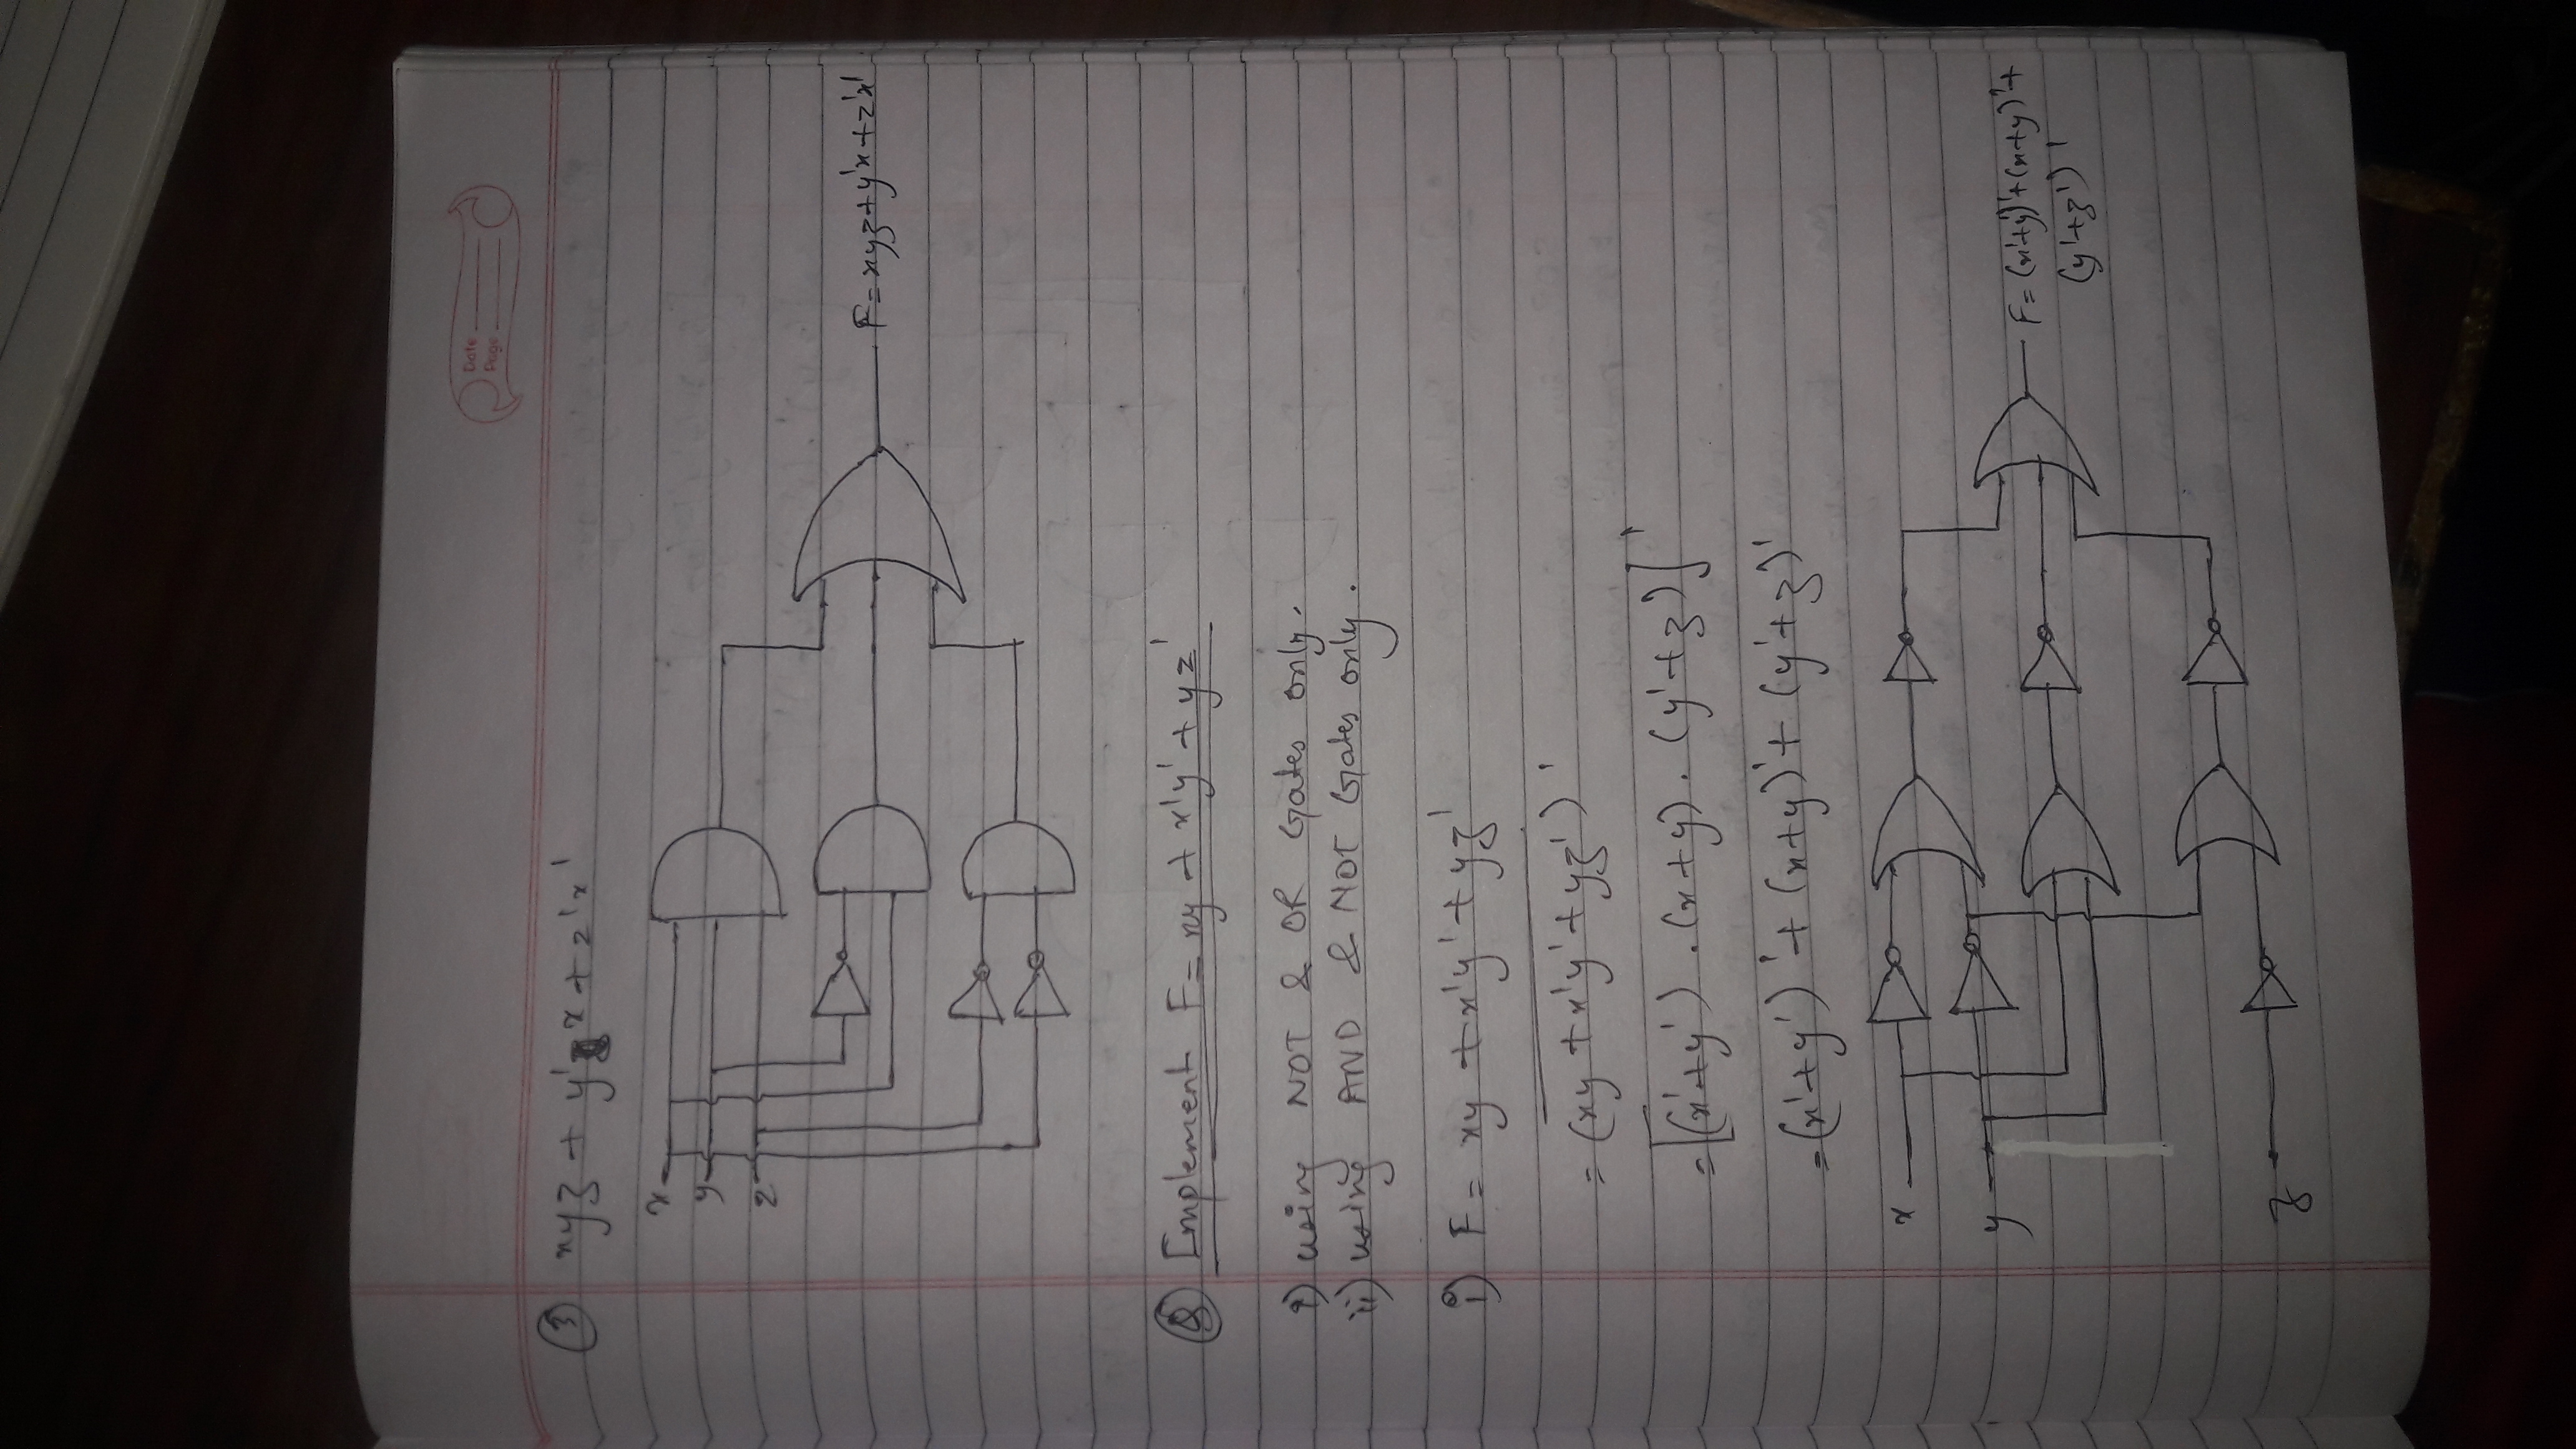 Date
Page
③ xyz + y'x + z'x'
x
y
z
F = xyz + y'x + z'x'
Q Implement F = xy + x'y' + yz'
i) using NOT & OR Gates only.
ii) using AND & NOT Gates only.
i) F = xy + x'y' + yz'
= (xy + x'y' + yz')'
= [(x'+y') . (x+y) . (y'+z)]'
= (x'+y')' + (x+y)' + (y'+z)'
x
y
F = (x'+y')' + (x+y)' +
(y'+z')'
z